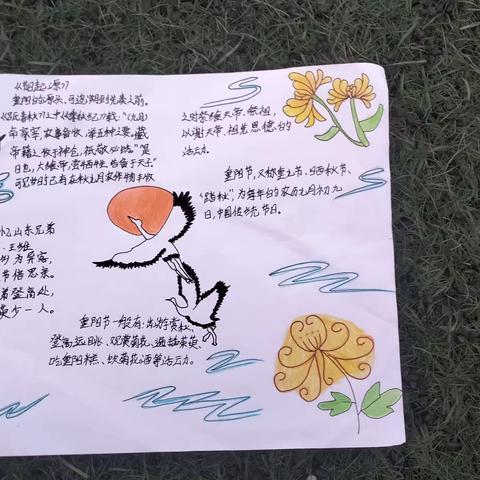 从何起源?
重阳的源头,可追溯到先秦之前。
《吕氏春秋》之中《季秋纪》载:"(九月)
命冢宰,农事备收,举五种之要。藏
帝籍之收于神仓,祗敬必饬。"是
日也,大飨帝,尝牺牲,告备于天子。"
可见当时已有在秋九月农作物丰收
之时祭飨天帝、祭祖,
以谢天帝、祖先恩德的
活动。
重阳节,又称重九节、晒秋节、
"踏秋",为每年的农历九月初九
日,中国传统节日。
忆山东兄弟
·王维
乡为异客,
节倍思亲。
登高处,
少一人。
重阳节一般有:出游赏秋、
登高远眺、观赏菊花、遍插茱萸、
吃重阳糕、饮菊花酒等活动。